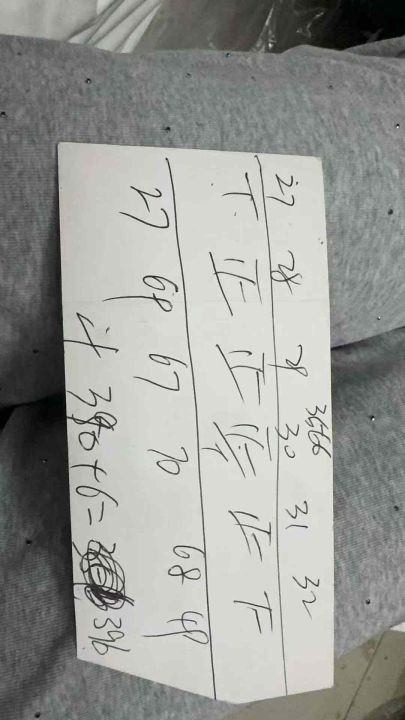 3566
27 28 29 30 31 32
丅 正 正 正 正 下
27 68 67 70 68 48
计 390+6= 396